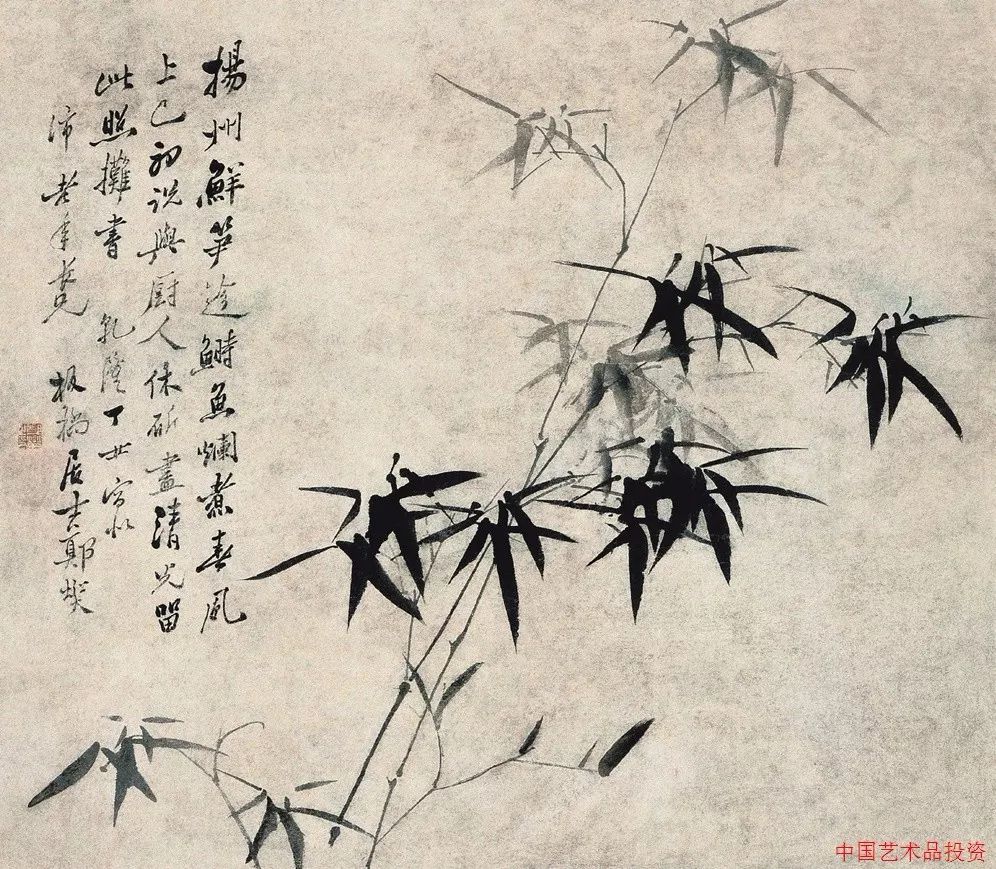 揚州鮮笋趁鰣魚爛煮春風
上巳初説與厨人休斫盡清光留
此照攤書 乾隆丁丑寫似
沛老年兄 板橋居士鄭燮
中国艺术品投资